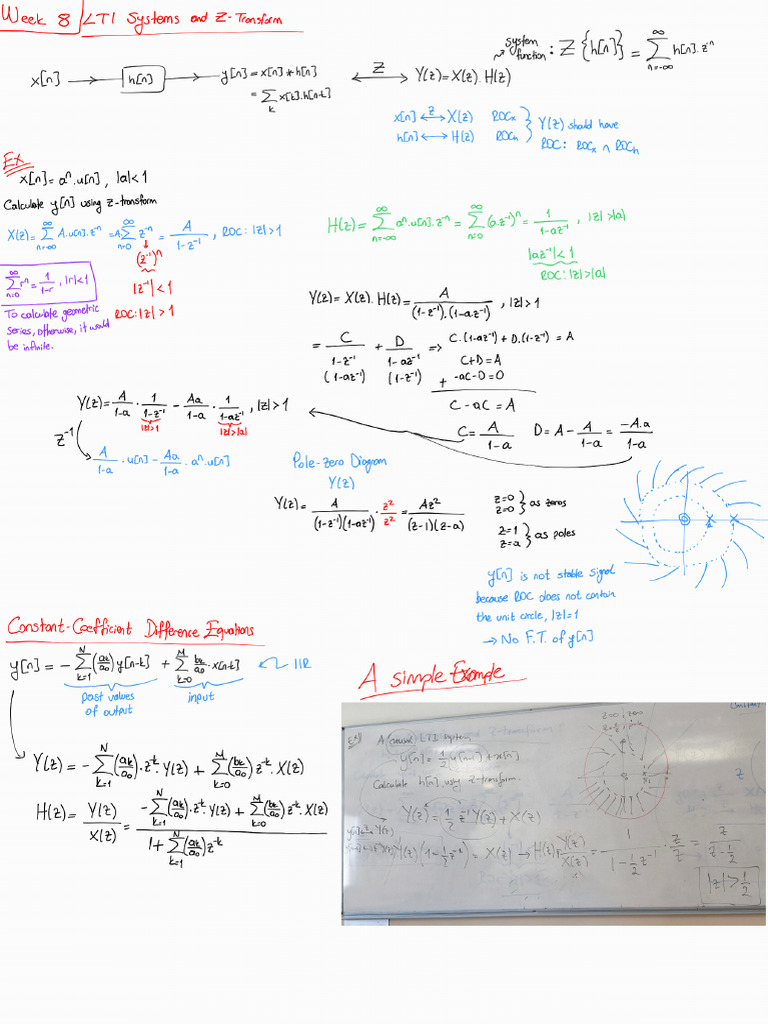 Week 8 LTI Systems and Z-Transform
x[n] → h[n] → y[n] = x[n] * h[n]
= Σ_k x[k].h[n-k]
⟷ Z Y(z) = X(z). H(z)
system function : Z{h[n]} = Σ_{n=-∞}^{∞} h[n].z^n
x[n] ⟷ Z X(z) ROCx
h[n] ⟷ H(z) ROCh
} Y(z) should have
ROC: ROCx ∩ ROCh
Ex
x[n] = a^n.u[n], |a|<1
Calculate y[n] using z-transform
X(z) = Σ_{n=-∞}^{∞} A.u[n].z^-n = A Σ_{n=0}^{∞} z^-n = A/(1-z^-1), ROC: |z|>1
(z^-1)^n
|z^-1|<1
ROC: |z|>1
Σ_{n=0}^{∞} r^n = 1/(1-r), |r|<1
To calculate geometric
series, otherwise, it would
be infinite.
H(z) = Σ_{n=-∞}^{∞} a^n.u[n].z^-n = Σ_{n=0}^{∞} (a.z^-1)^n = 1/(1-az^-1), |z|>|a|
|az^-1|<1
ROC: |z|>|a|
Y(z) = X(z). H(z) = A/((1-z^-1).(1-a.z^-1)), |z|>1
= C/(1-z^-1) + D/(1-az^-1) ⇒ C.(1-az^-1) + D.(1-z^-1) = A
(1-az^-1) (1-z^-1)
C+D = A
+ -aC-D = 0
C - aC = A
C = A/(1-a) D = A - A/(1-a) = -A.a/(1-a)
Y(z) = A/(1-a) . 1/(1-z^-1) - Aa/(1-a) . 1/(1-az^-1), |z|>1
|z|>1 |z|>|a|
z^-1
A/(1-a) . u[n] - Aa/(1-a) . a^n.u[n]
Pole-zero Diagram
Y(z)
Y(z) = A/((1-z^-1)(1-az^-1)) . z^2/z^2 = Az^2/((z-1)(z-a))
z=0
z=0 } as zeros
z=1
z=a } as poles
y[n] is not stable signal
because ROC does not contain
the unit circle, |z|=1
→ No F.T. of y[n]
Constant-Coefficient Difference Equations
y[n] = - Σ_{k=1}^{N} (ak/a0) y[n-k] + Σ_{k=0}^{M} bk/a0 . x[n-k] IIR
past values of output
input
Y(z) = - Σ_{k=1}^{N} (ak/a0).z^-k. Y(z) + Σ_{k=0}^{M} (bk/a0) z^-k. X(z)
H(z) = Y(z)/X(z) = (- Σ_{k=1}^{N} (ak/a0).z^-k. Y(z) + Σ_{k=0}^{M} (bk/a0) z^-k. X(z)) / (1 + Σ_{k=1}^{N} (ak/a0) z^-k)
A simple Example
A causal LTI system
y[n] = 1/2 y[n-1] + x[n]
Calculate h[n] using z-transform.
Y(z) = 1/2 z^-1 Y(z) + X(z)
Y(z)(1 - 1/2 z^-1) = X(z) → H(z) = Y(z)/X(z) = 1/(1 - 1/2 z^-1) . z/z = z/(z - 1/2)
|z| > 1/2